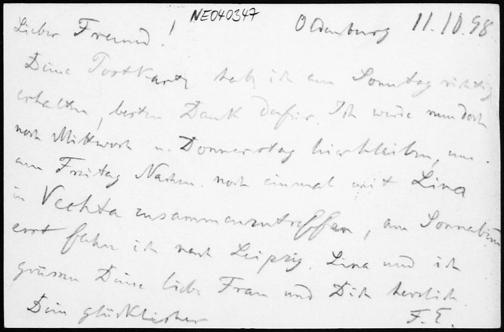 NE040347
Oldenburg 11.10.98
Lieber Freund!
Deine Postkarte hab ich am Sonntag richtig
erhalten, besten Dank dafür. Ich werde nun doch
noch Mittwoch u. Donnerstag hierbleiben, um
am Freitag Nachm. noch einmal mit Lina
in Vechta zusammenzutreffen, am Sonnabend
erst fahre ich nach Leipzig. Lina und ich
grüssen Deine liebe Frau und Dich herzlich.
Dein glücklicher
F. E.